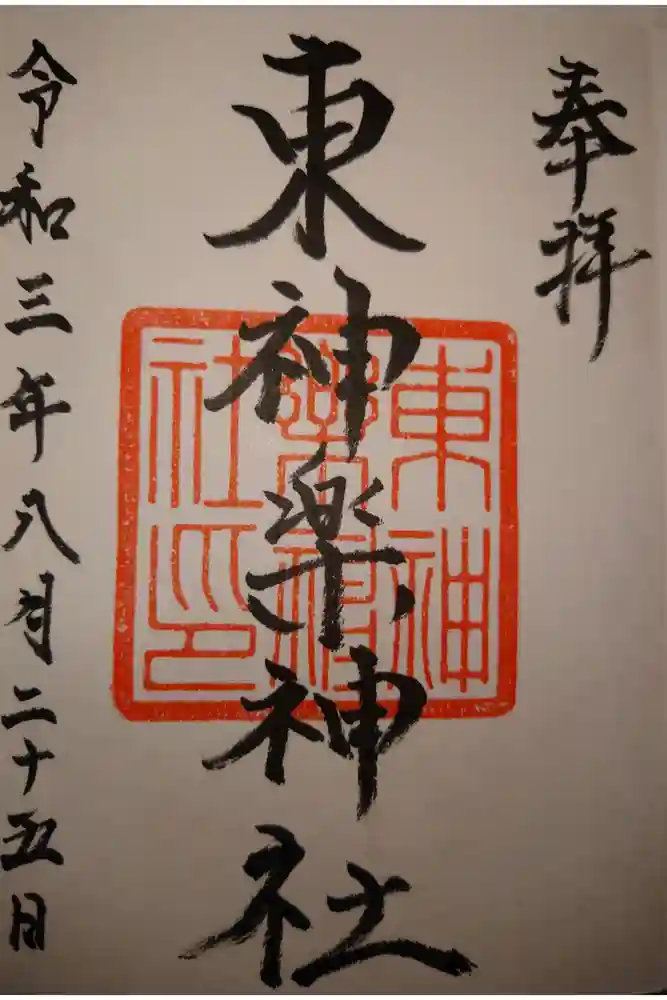 奉拝
東神楽神社
令和三年八月二十五日
東神
楽神
社印